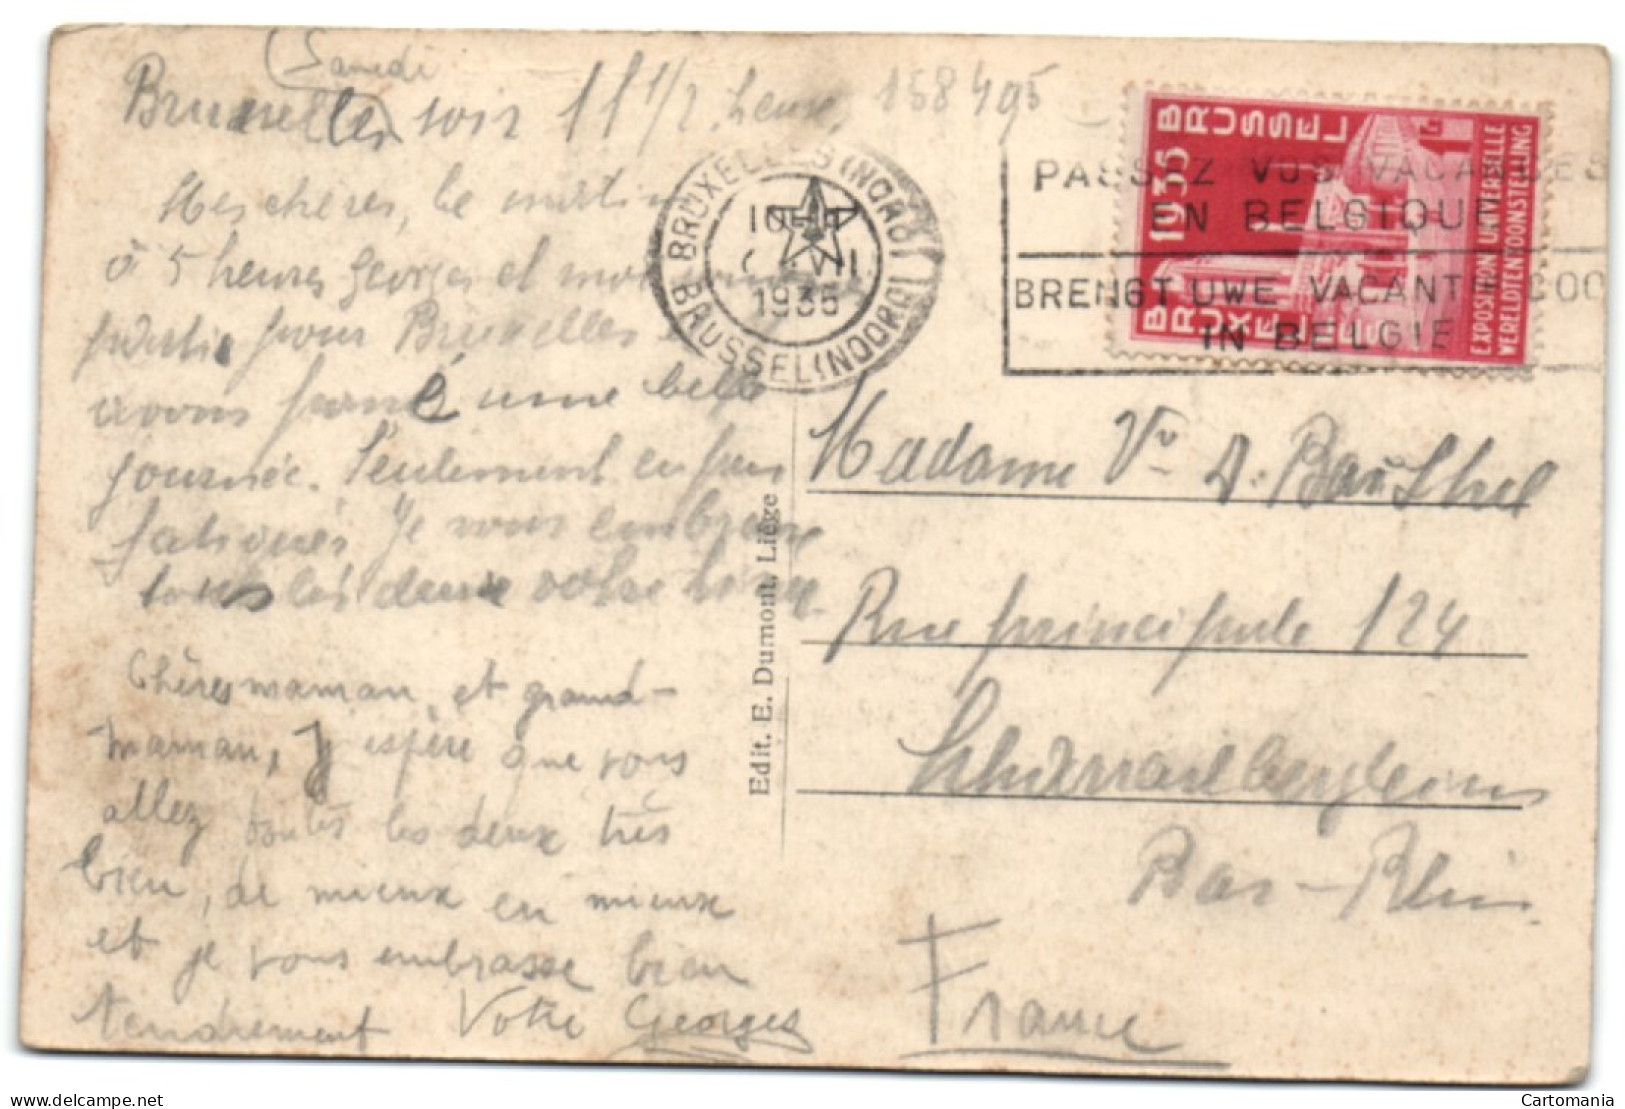 Samedi
Bruxelles soir 11 1/2 heure. 158495
Mes chères, ce matin
à 5 heures Georges et moi
partis pour Bruxelles
avons passé une belle
journée. Seulement un peu
fatigués Je vous embrasse
tous les deux votre
Chères maman, et grand-
maman, J'espère que vous
allez toutes les deux très
bien, de mieux en mieux
et je vous embrasse bien
tendrement Votre Georges
BRUXELLES (NORD)
1935
BRUSSEL (NOORD)
PASSEZ VOS VACANCES
EN BELGIQUE
BRENGT UWE VACANTIE DOOR
IN BELGIE
1935 BRUSSEL
BRUXELLES
EXPOSITION UNIVERSELLE
WERELDTENTOONSTELLING
Edit. E. Dumont, Liège
Madame Vve A.
Rue principale 124
Bas-Rhin
France
Cartomania